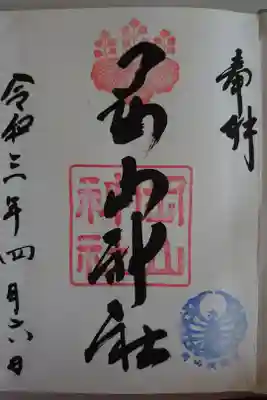 奉拝
岡山神社
岡山
神社
令和三年四月六日